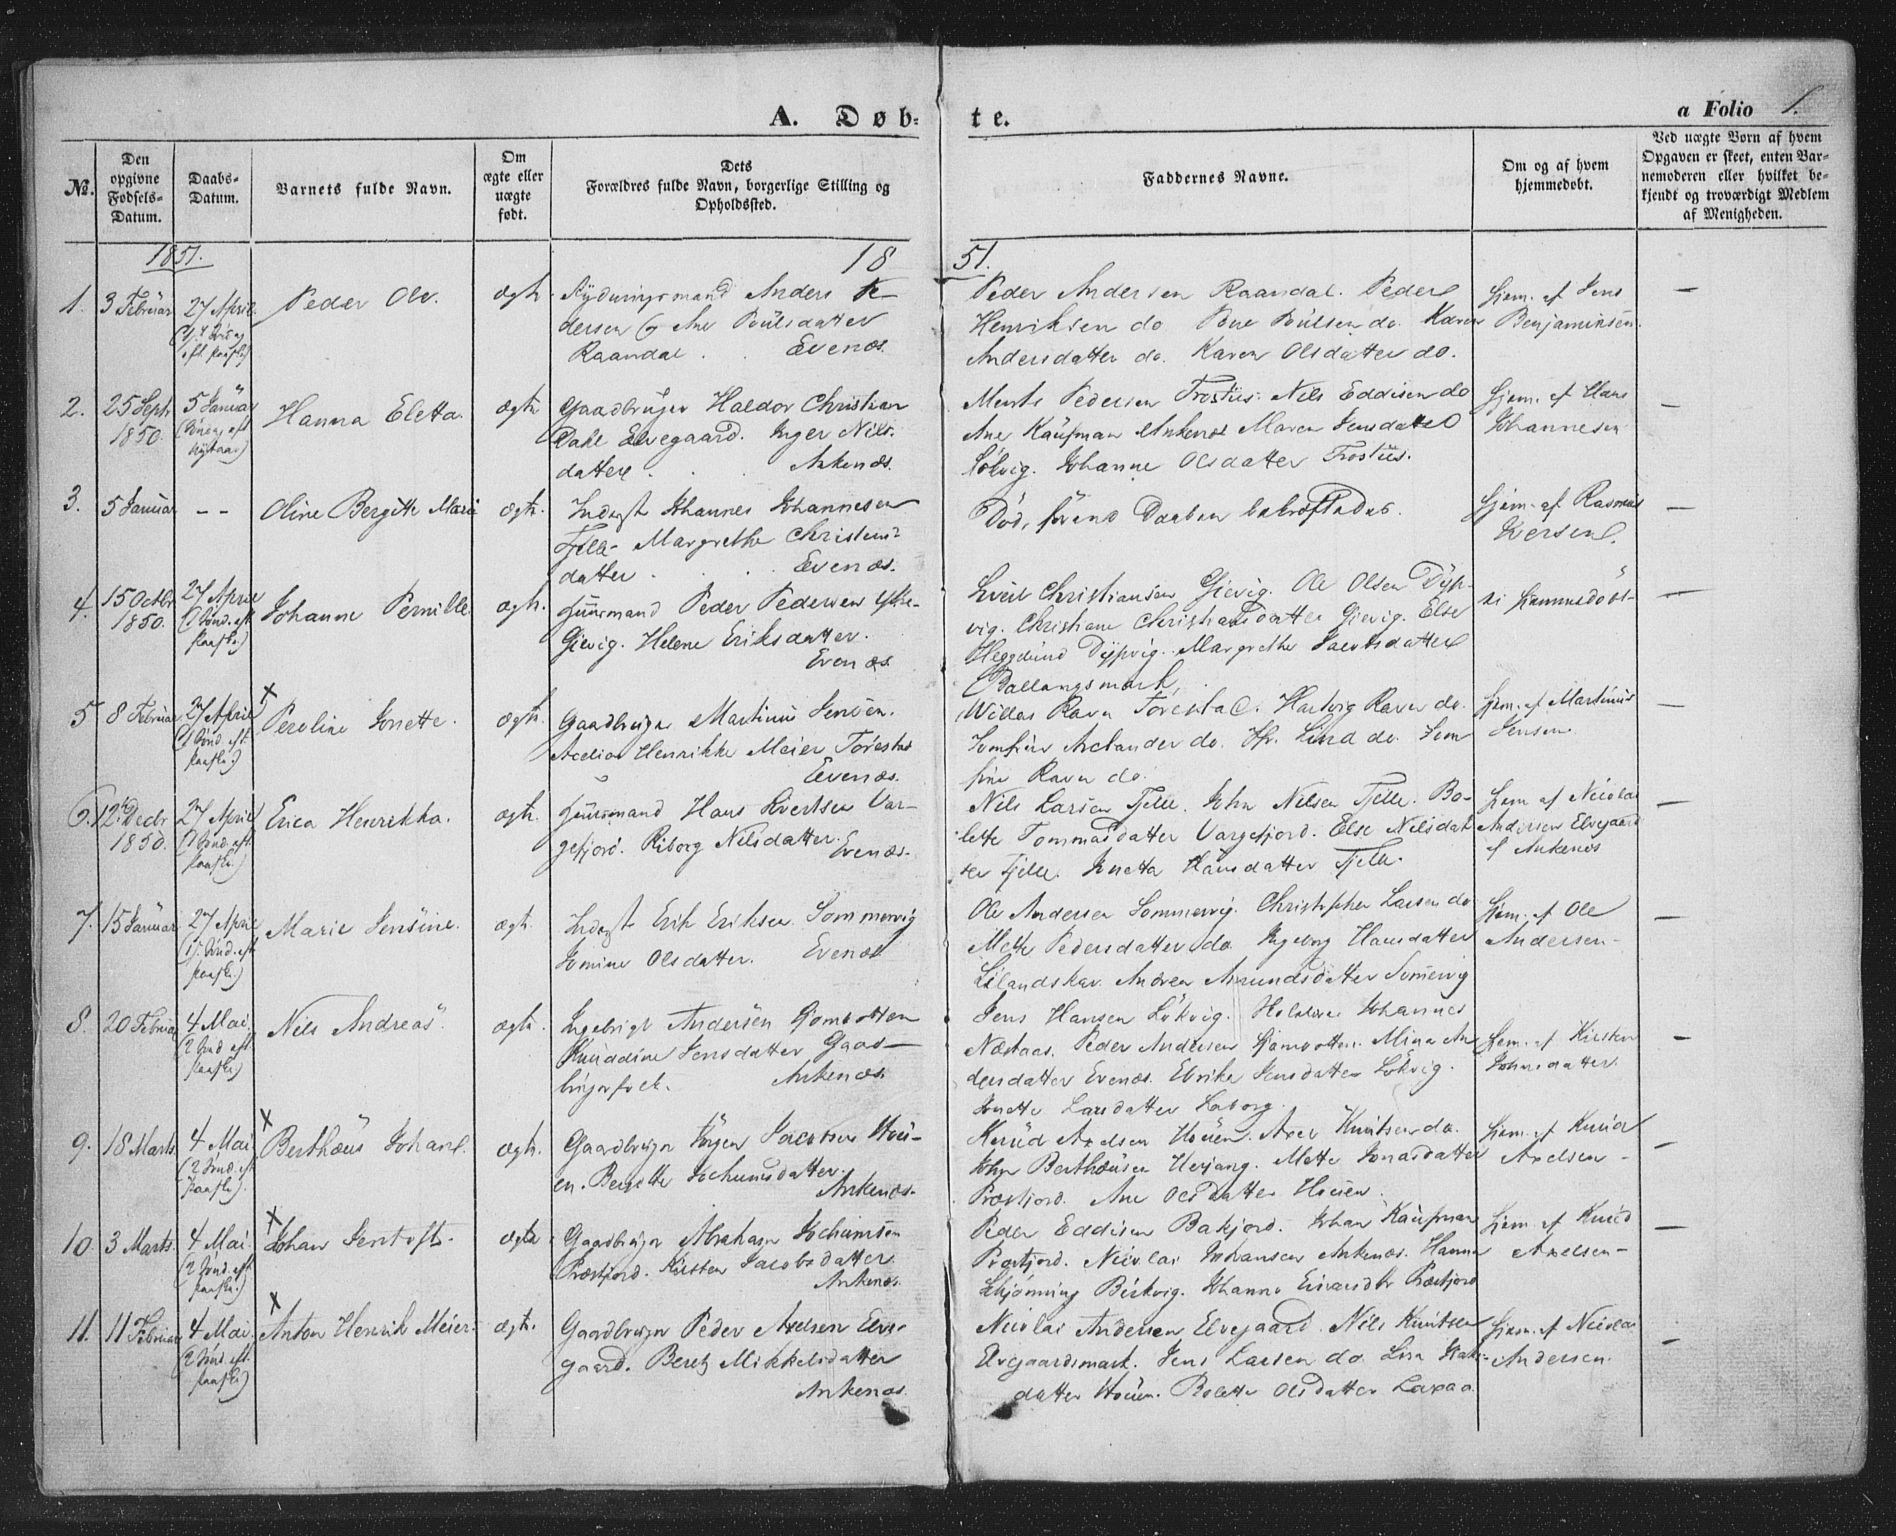 A. Døb-
te.
a Folio 1.
№.
Den opgivne Fødsels-Datum.
Daabs-Datum.
Barnets fulde Navn.
Om ægte eller uægte født.
Dets Forældres fulde Navn, borgerlige Stilling og Opholdssted.
Faddernes Navne.
Om og af hvem hjemmedøbt.
Ved uægte Børn af hvem Opgaven er skeet, enten Barnemoderen eller hvilket bekjendt og troværdigt Medlem af Menigheden.
1851.
18
51.
1. 3 Februar 27 April Peder Ole. ægte Rydningsmand Anders Pe-
dersen & Ane Poulsdatter
Raandal . . Evenæs.
Peder Andersen Raandal. Peder
Henriksen do Povel Poulsen do. Karen
Andersdatter do. Karen Olsdatter do.
hjem. af Jens
Benjaminsen.
—
2. 25 Septr 1850. 5 Januar (Søndag eft. Nytaar) Hanna Eletta. ægte Gaardbruger Haldor Christian
Dahl Elvegaard. Inger Nils-
datter . . Ankenæs.
Ments Pedersen Trostüs. Nils Eddisen do
Ane Kaufman Ankenæs Maren Jensdatter
Løkvig. Johanne Olsdatter Trostüs.
hjem. af Hans
Johannesen
—
3. 5 Januar -- Oline Bergitte Maria ægte. Inderst Johannes Johannesen
Fjelle- Margrethe Christens-
datter . . . Evenæs.
Død, førend Daaben bekræftedes.
hjem. af Rasmus
Iversen.
—
4. 15 Octbr 1850. 27 April (1 Sønd. eft. Paaske) Johanne Pernille ægte. Huusmand Peder Pedersen Ytre-
Gievig. Helene Eriksdatter.
Evenæs
Sivert Christiansen Gievig. Ole Olsen Dyp-
vig. Christiane Christiansdatter Gievig. Else
Heggelund Dypvig. Margrethe Jacobsdatter
Ballangsmark.
ei hjemmedøbt
—
5 8 Februar 27 April (1 Sønd. eft. Paaske) × Peroline Jonette. ægte. Gaardbruger Martinus Jensen.
Henrikke Meier Forestad
Evenæs.
Willas Ravn Forestad. Hartvig Ravn do.
Jomfrue Arctander do. Hr. Lind do. Jom
frue Ravn do.
hjem. af Martinus
Jensen.
—
6. 12te Decbr 1850. 27 April (1 Sønd. eft. Paaske.) Erica Henrikka. ægte. Huusmand Hans Sivertsen Var-
gefjord. Riborg Nilsdatter.
Evenæs.
Nils Larsen Fjelle. John Nilsen Fjelle. Bo-
lette Tommasdatter Vargefjord. Else Nilsdat
ter Fjelle. Jonetta Hansdatter Fjelle.
hjem af Nicolai
Andersen Elvegaard
af Ankenes
—
7. 15 Januar 27 April (1. Sønd. eft. Paaske.) Marie Jensine. ægte. Inderst Erik Eriksen Sommervig
Jomine Olsdatter. Evenæs
Ole Andersen Sommervig. Christopher Larsen do
Mette Pedersdatter do. Ingeborg Hansdatter
Lilandskar. Andrea Amundsdatter Somervig
hjem. af Ole
Andersen-
—
8. 20 Februar 4 Mai (2 Sønd. eft. Paaske) Nils Andreas ægte. Ingebrigt Andersen
Knudine Jensdatter Gaard-
brugerfolk. Ankenæs.
Jens Hansen Løkvig. Johannes
Næstaas. Peder Andersen Mina An
dersdatter Evenæs. Elrike Jensdatter Løkvig.
Jonette Larsdatter Laborg.
hjem. af Kirsten
Johnsdatter.
—
9. 18 Marts. 4 Mai (2 Sønd. eft. Paaske) × Berthæus Johan. ægte. Gaardbruger Jörgen Jacobsen Hou-
en. Bergitte Jochumsdatter.
Ankenæs.
Knud Axelsen Houen. Axel Knutsen do.
John Berthæusen Herjang. Mette Jonasdatter
Præstjord. Ane Olsdatter Houen.
hjem. af Knud
Axelsen-
—
10. 3 Marts. 4 Mai (2 Sønd. eft. Paaske.) × Johan Jentoft. ægte Gaardbruger Abraham Jochumsen
Præstjord. Kirsten Jacobsdatter
Ankenæs.
Peder Eddisen Bakjord. Johan Kaufman
Præstjord. Nicolai Johansen Ankenæs. Hanna
Skjønning Birkvig. Johanne Præstjord
hjem af Knud
Axelsen-
—
11. 11 Februar 4 Mai (2 Sønd. eft. Paaske) × Anton Henrik Meier. ægte. Gaardbruger Peder Axelsen Elve-
gaard. Beret Mikkelsdatter
Ankenæs.
Nicolai Andersen Elvegaard. Nils Knutsen
Elvegaardsmark. Jens Larsen do Lisa
datter Houen. Bolette Olsdatter Laxaa.
hjem. af Nicolai
Andersen.
—